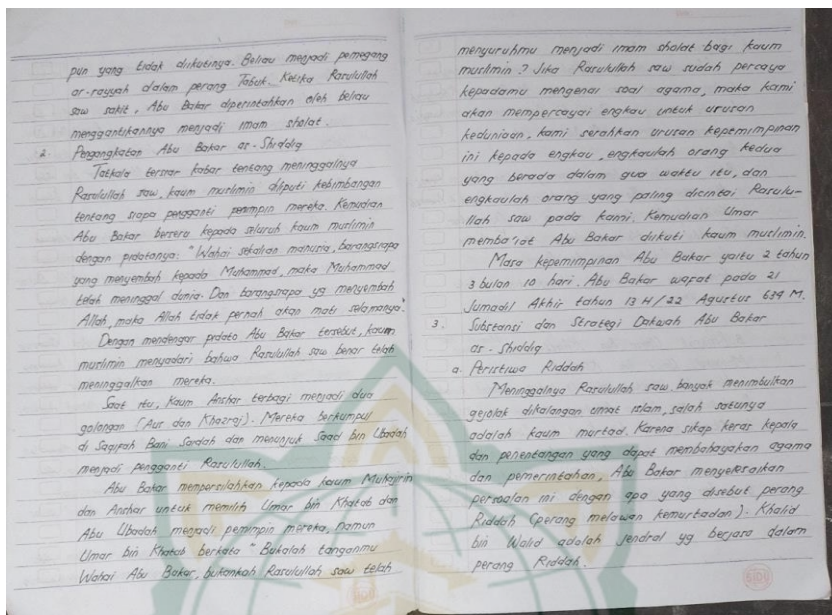 pun yang tidak diikutinya. Beliau menjadi pemegang
ar-rayyah dalam perang Tabuk. Ketika Rasulullah
saw sakit, Abu Bakar diperintahkan oleh beliau
menggantikannya menjadi imam sholat.
2. Pengangkatan Abu Bakar as-Shiddiq
Tatkala tersiar kabar tentang meninggalnya
Rasulullah saw, kaum muslimin diliputi kebimbangan
tentang siapa pengganti pemimpin mereka. Kemudian
Abu Bakar berseru kepada seluruh kaum muslimin
dengan pidatonya: "Wahai sekalian manusia, barangsiapa
yang menyembah kepada Muhammad, maka Muhammad
telah meninggal dunia. Dan barangsiapa yg menyembah
Allah, maka Allah tidak pernah akan mati selamanya."
Dengan mendengar pidato Abu Bakar tersebut, kaum
muslimin menyadari bahwa Rasulullah saw benar telah
meninggalkan mereka.
Saat itu, Kaum Anshar terbagi menjadi dua
golongan (Aus dan Khazraj). Mereka berkumpul
di Saqifah Bani Saidah dan menunjuk Saad bin Ubadah
menjadi pengganti Rasulullah.
Abu Bakar mempersilahkan kepada kaum Muhajirin
dan Anshar untuk memilih Umar bin Khatab dan
Abu Ubadah menjadi pemimpin mereka, namun
Umar bin Khatab berkata "Bukalah tanganmu
Wahai Abu Bakar, bukankah Rasulullah saw telah
menyuruhmu menjadi imam sholat bagi kaum
muslimin? Jika Rasulullah saw sudah percaya
kepadamu mengenai soal agama, maka kami
akan mempercayai engkau untuk urusan
keduniaan, kami serahkan urusan kepemimpinan
ini kepada engkau, engkaulah orang kedua
yang berada dalam gua waktu itu, dan
engkaulah orang yang paling dicintai Rasulu-
llah saw pada kami. Kemudian Umar
memba'iat Abu Bakar diikuti kaum muslimin.
Masa kepemimpinan Abu Bakar yaitu 2 tahun
3 bulan 10 hari. Abu Bakar wafat pada 21
Jumadil Akhir tahun 13 H/22 Agustus 634 M.
3. Substansi dan Strategi Dakwah Abu Bakar
as-Shiddiq
a. Peristiwa Riddah
Meninggalnya Rasulullah saw banyak menimbulkan
gejolak dikalangan umat islam, salah satunya
adalah kaum murtad. Karena sikap keras kepala
dan penentangan yang dapat membahayakan agama
dan pemerintahan, Abu Bakar menyelesaikan
persoalan ini dengan apa yang disebut perang
Riddah (perang melawan kemurtadan). Khalid
bin Walid adalah jendral yg berjasa dalam
perang Riddah.
SIDU
SIDU